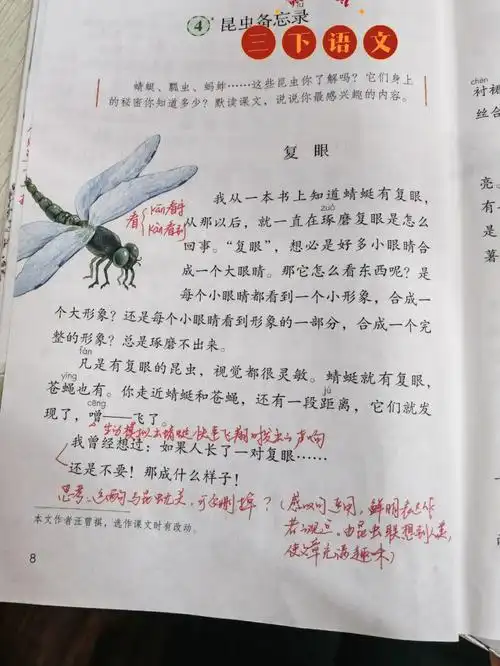 4 昆虫备忘录
三下语文
蜻蜓、瓢虫、蚂蚱……这些昆虫你了解吗？它们身上
的秘密你知道多少？默读课文，说说你最感兴趣的内容。
复眼
我从一本书上知道蜻蜓有复眼，
zuó
从那以后，就一直在琢磨复眼是怎么
看
kān看守
kàn看到
回事。“复眼”，想必是好多小眼睛合
成一个大眼睛。那它怎么看东西呢？是
每个小眼睛都看到一个小形象，合成一
个大形象？还是每个小眼睛看到形象的一部分，合成一个完
整的形象？总是琢磨不出来。
fán
凡是有复眼的昆虫，视觉都很灵敏。蜻蜓就有复眼，
yíng
jù
苍蝇也有。你走近蜻蜓和苍蝇，还有一段距离，它们就发
现了，噌——飞了。
生动模拟出蜻蜓快速飞翔时发出的声响
我曾经想过：如果人长了一对复眼……
还是不要！那成什么样子！
思考：这两句与昆虫无关，可否删掉？
（感叹句运用，鲜明表达作
者的观点。由昆虫联想到人类，
使文章充满趣味）
本文作者汪曾祺，选作课文时有改动。
8
chèn
衬裙
丝合
亮。
是
薯